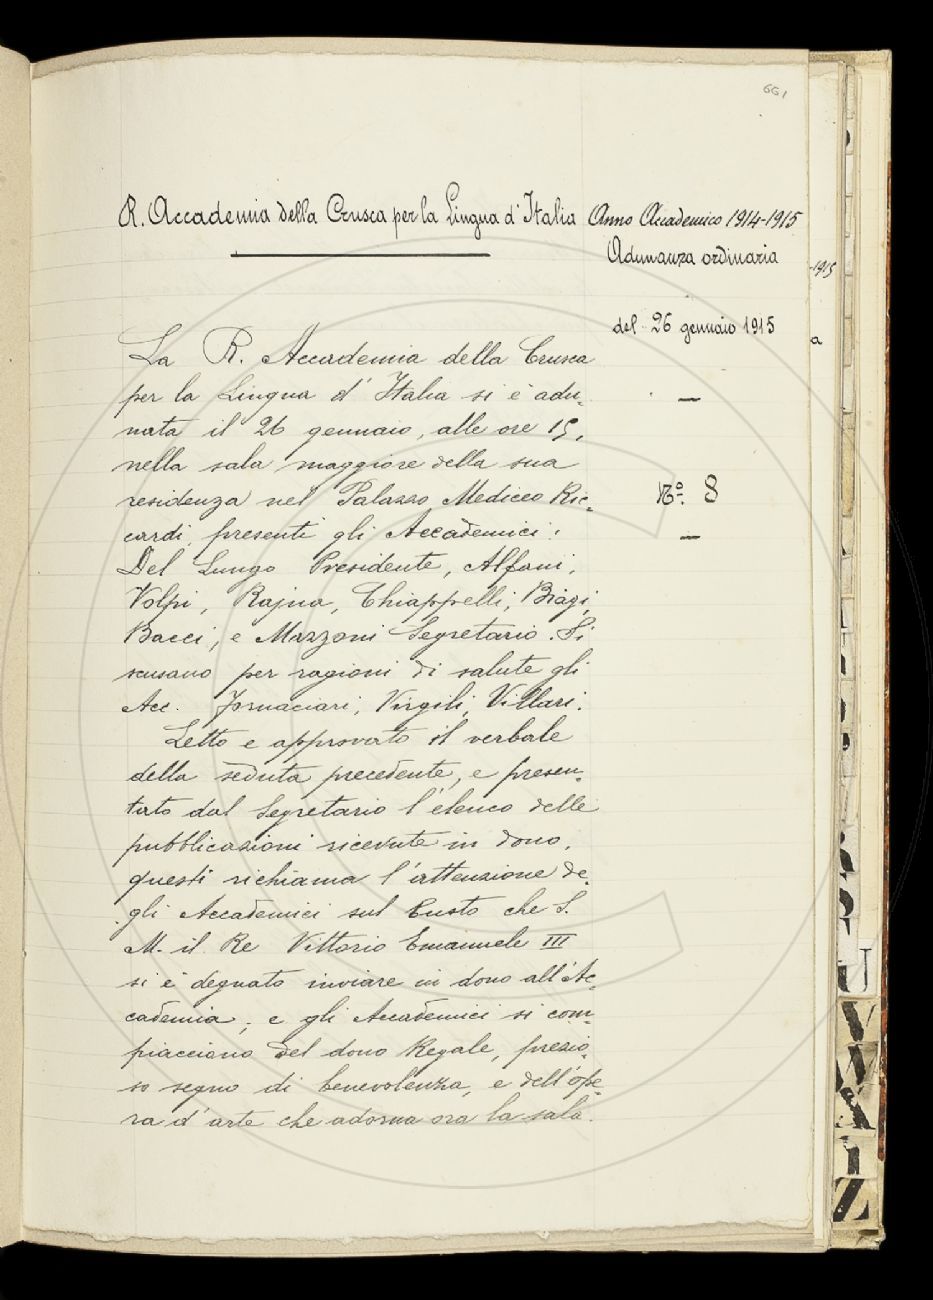 661
R. Accademia della Crusca per la Lingua d'Italia
Anno Accademico 1914-1915
Adunanza ordinaria
del 26 gennaio 1915
—
N.º 8
—
La R. Accademia della Crusca
per la Lingua d'Italia si è adu-
nata il 26 gennaio, alle ore 15,
nella sala maggiore della sua
residenza nel Palazzo Mediceo Ric-
cardi, presenti gli Accademici:
Del Lungo Presidente, Alfani,
Volpi, Rajna, Chiappelli, Biagi,
Bacci, e Mazzoni Segretario. Si
scusano per ragioni di salute gli
Acc. Fornaciari, Virgili, Villari.
Letto e approvato il verbale
della seduta precedente, e presen-
tato dal Segretario l'elenco delle
pubblicazioni ricevute in dono,
questi richiama l'attenzione de-
gli Accademici sul busto che S.
M. il Re Vittorio Emanuele III
si è degnato inviare in dono all'Ac-
cademia; e gli Accademici si com-
piacciono del dono Regale, prezio-
so segno di benevolenza, e dell'ope-
ra d'arte che adorna ora la sala.
-1915
a
U
V
W
X
Y
Z